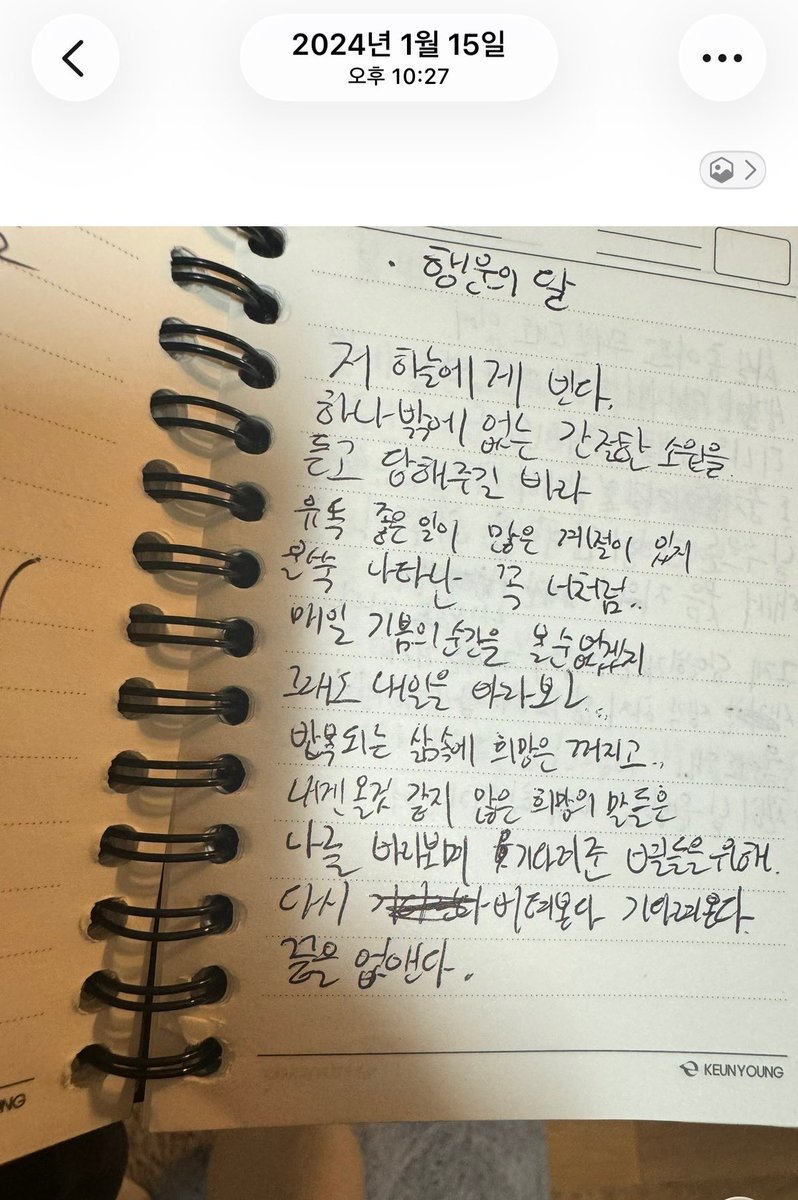 2024년 1월 15일
오후 10:27
· 행운의 달
저 하늘에게 빈다.
하나밖에 없는 간절한 소원을
듣고 답해주길 바라
유독 좋은일이 많은 계절이 있지
불쑥 나타난 꼭 너처럼..
매일 기쁨의 순간을 볼 순 없겠지
그래도 내일을 바라보고..
반복되는 삶속에 희망은 꺼지고..
내겐 올것 같지 않은 희망의 말들은
나를 바라보며 기다려준 너희들을 위해.
다시 버텨본다 기다려본다.
끝을 없앤다.
KEUNYOUNG
NG